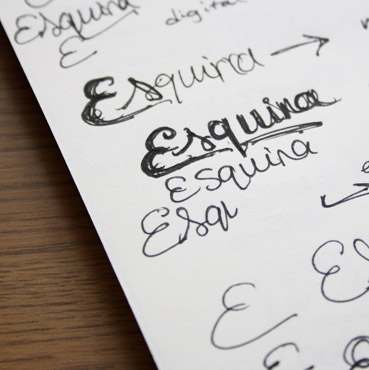 Esquina
digital
E
Esquina
Esquina
Esquina
Esqu
E
E